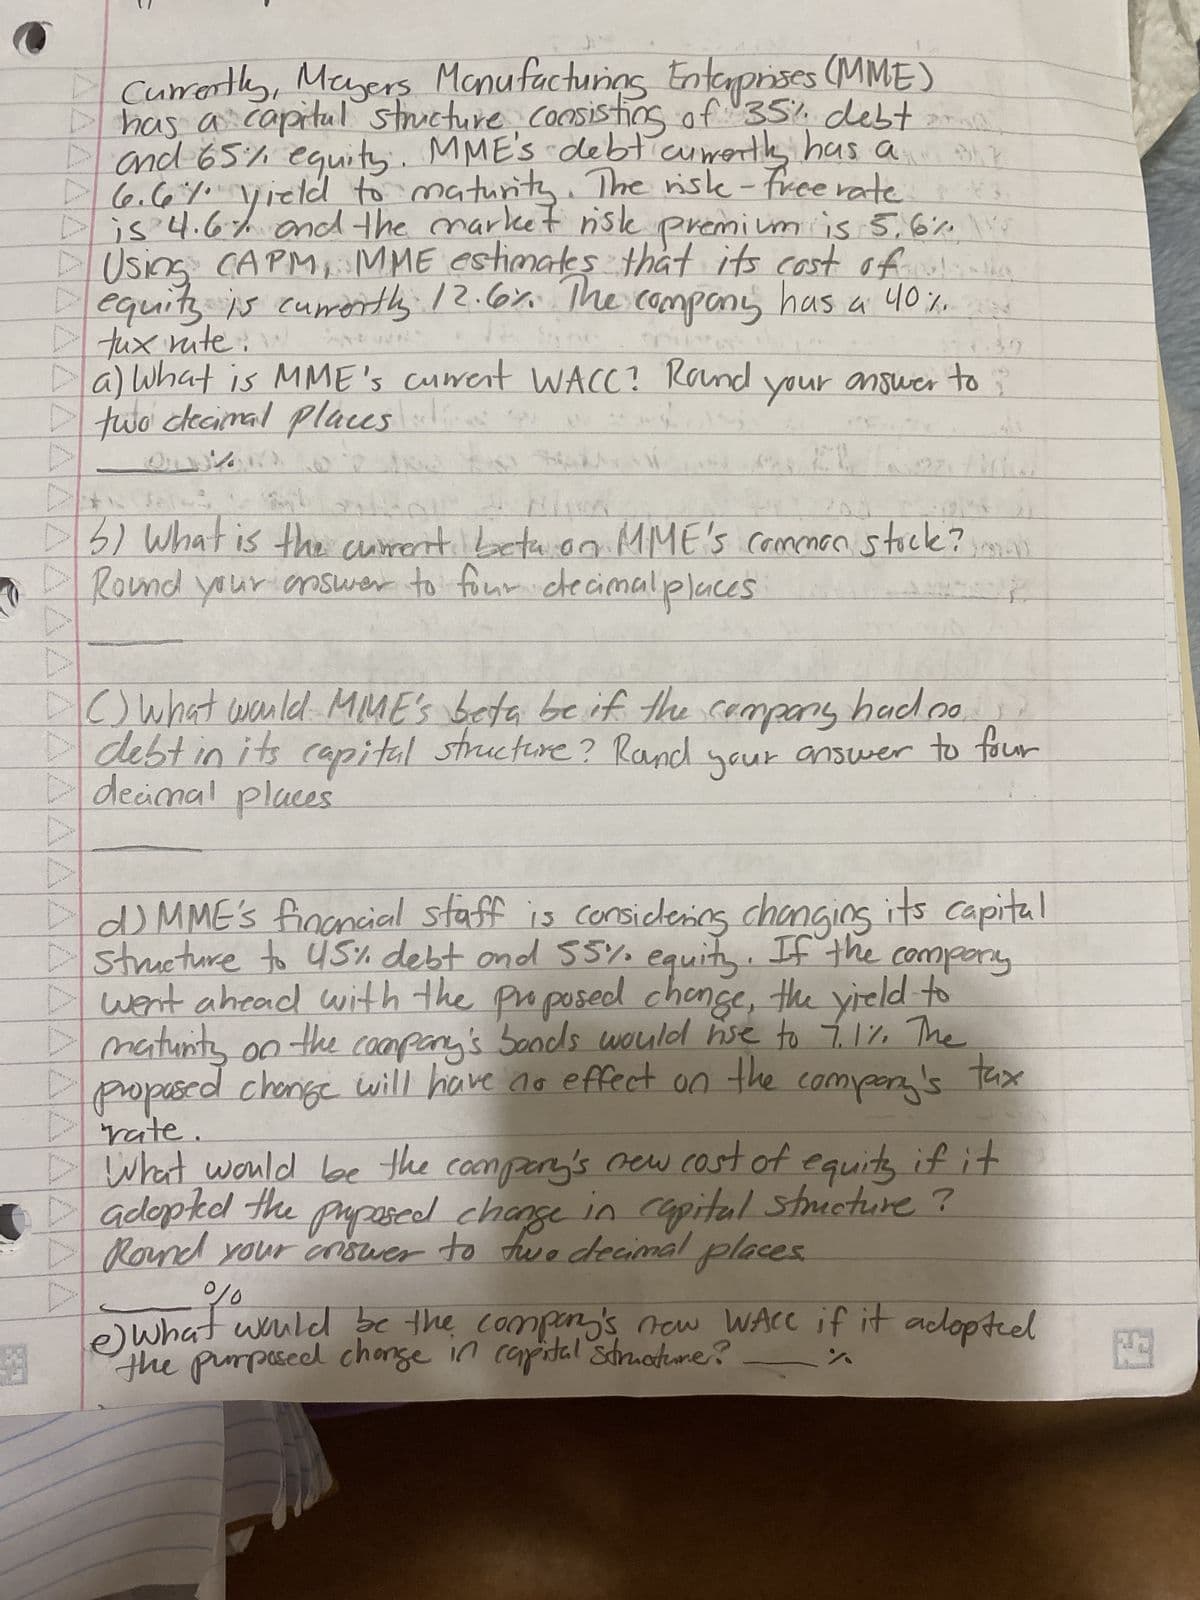 Currently, Mayers Manufacturing Enterprises (MME)
has a capital structure consisting of 35% debt
and 65% equity. MME's debt currently has a
6.6% yield to maturity. The risk-free rate
is 4.6% and the market risk premium is 5.6%.
Using CAPM, MME estimates that its cost of
equity is currently 12.6%. The company has a 40%
tax rate.
a) What is MME's current WACC? Round your answer to
two decimal places
%
b) What is the current beta on MME's common stock?
Round your answer to four decimal places
C) What would MME's beta be if the company had no
debt in its capital structure? Round your answer to four
decimal places
d) MME's financial staff is considering changing its capital
structure to 45% debt and 55% equity. If the company
went ahead with the proposed change, the yield to
maturity on the company's bonds would rise to 7.1%. The
proposed change will have no effect on the company's tax
rate.
What would be the company's new cost of equity if it
adopted the proposed change in capital structure?
Round your answer to two decimal places
%
e) What would be the company's new WACC if it adopted
the purposed change in capital structure? ___ %